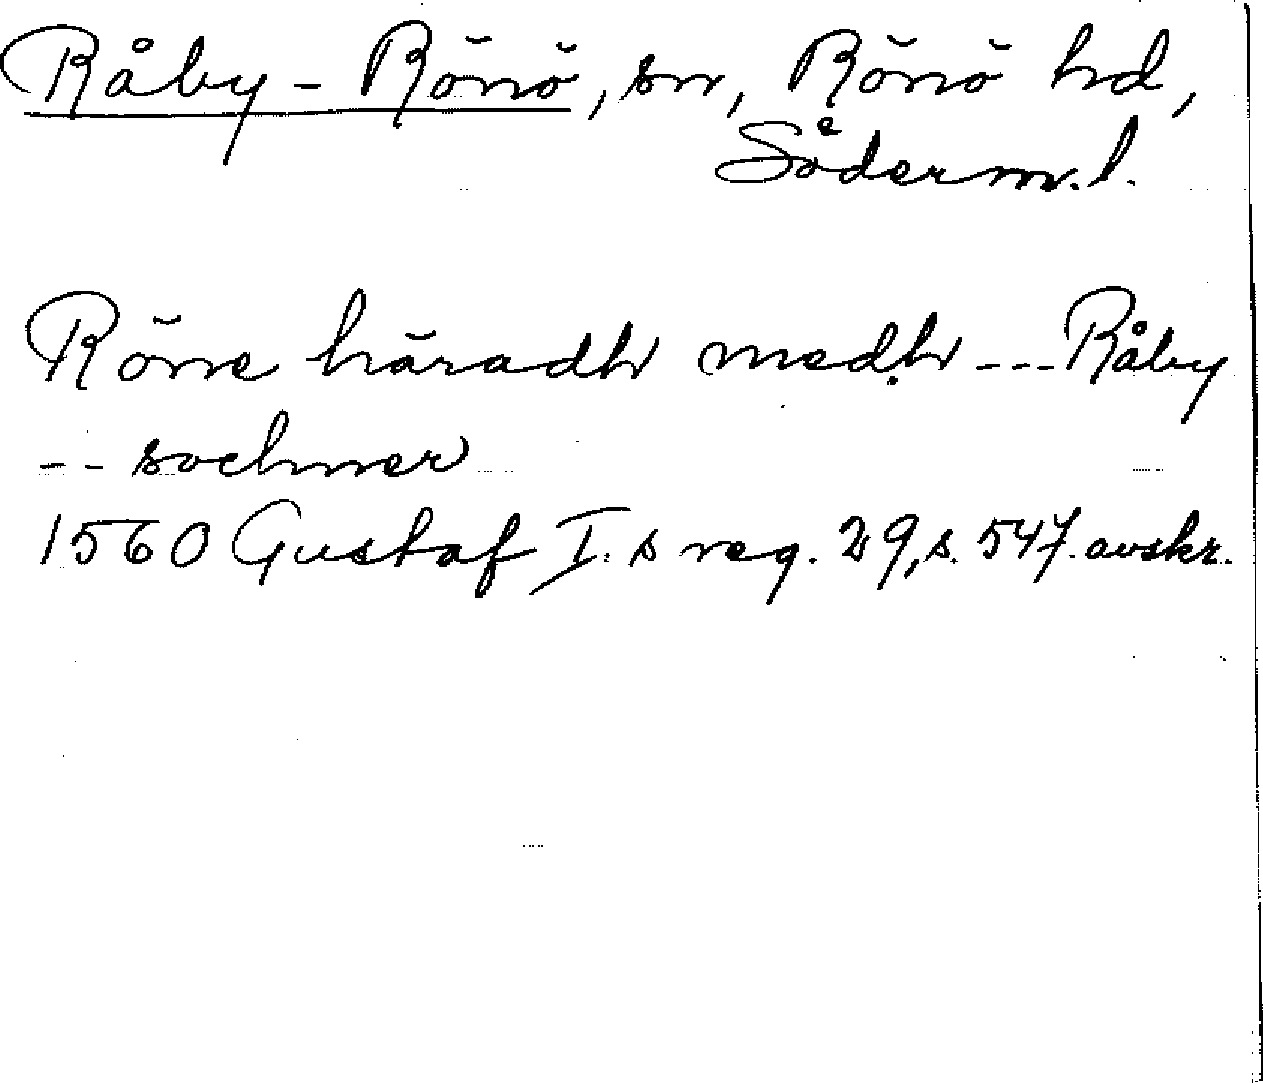 Råby - Rönö, sn, Rönö hd,
Söderm. l.
Röne häradh medh --- Råby
-- sochner
1560 Gustaf I:s reg. 29, s. 547. avskr.